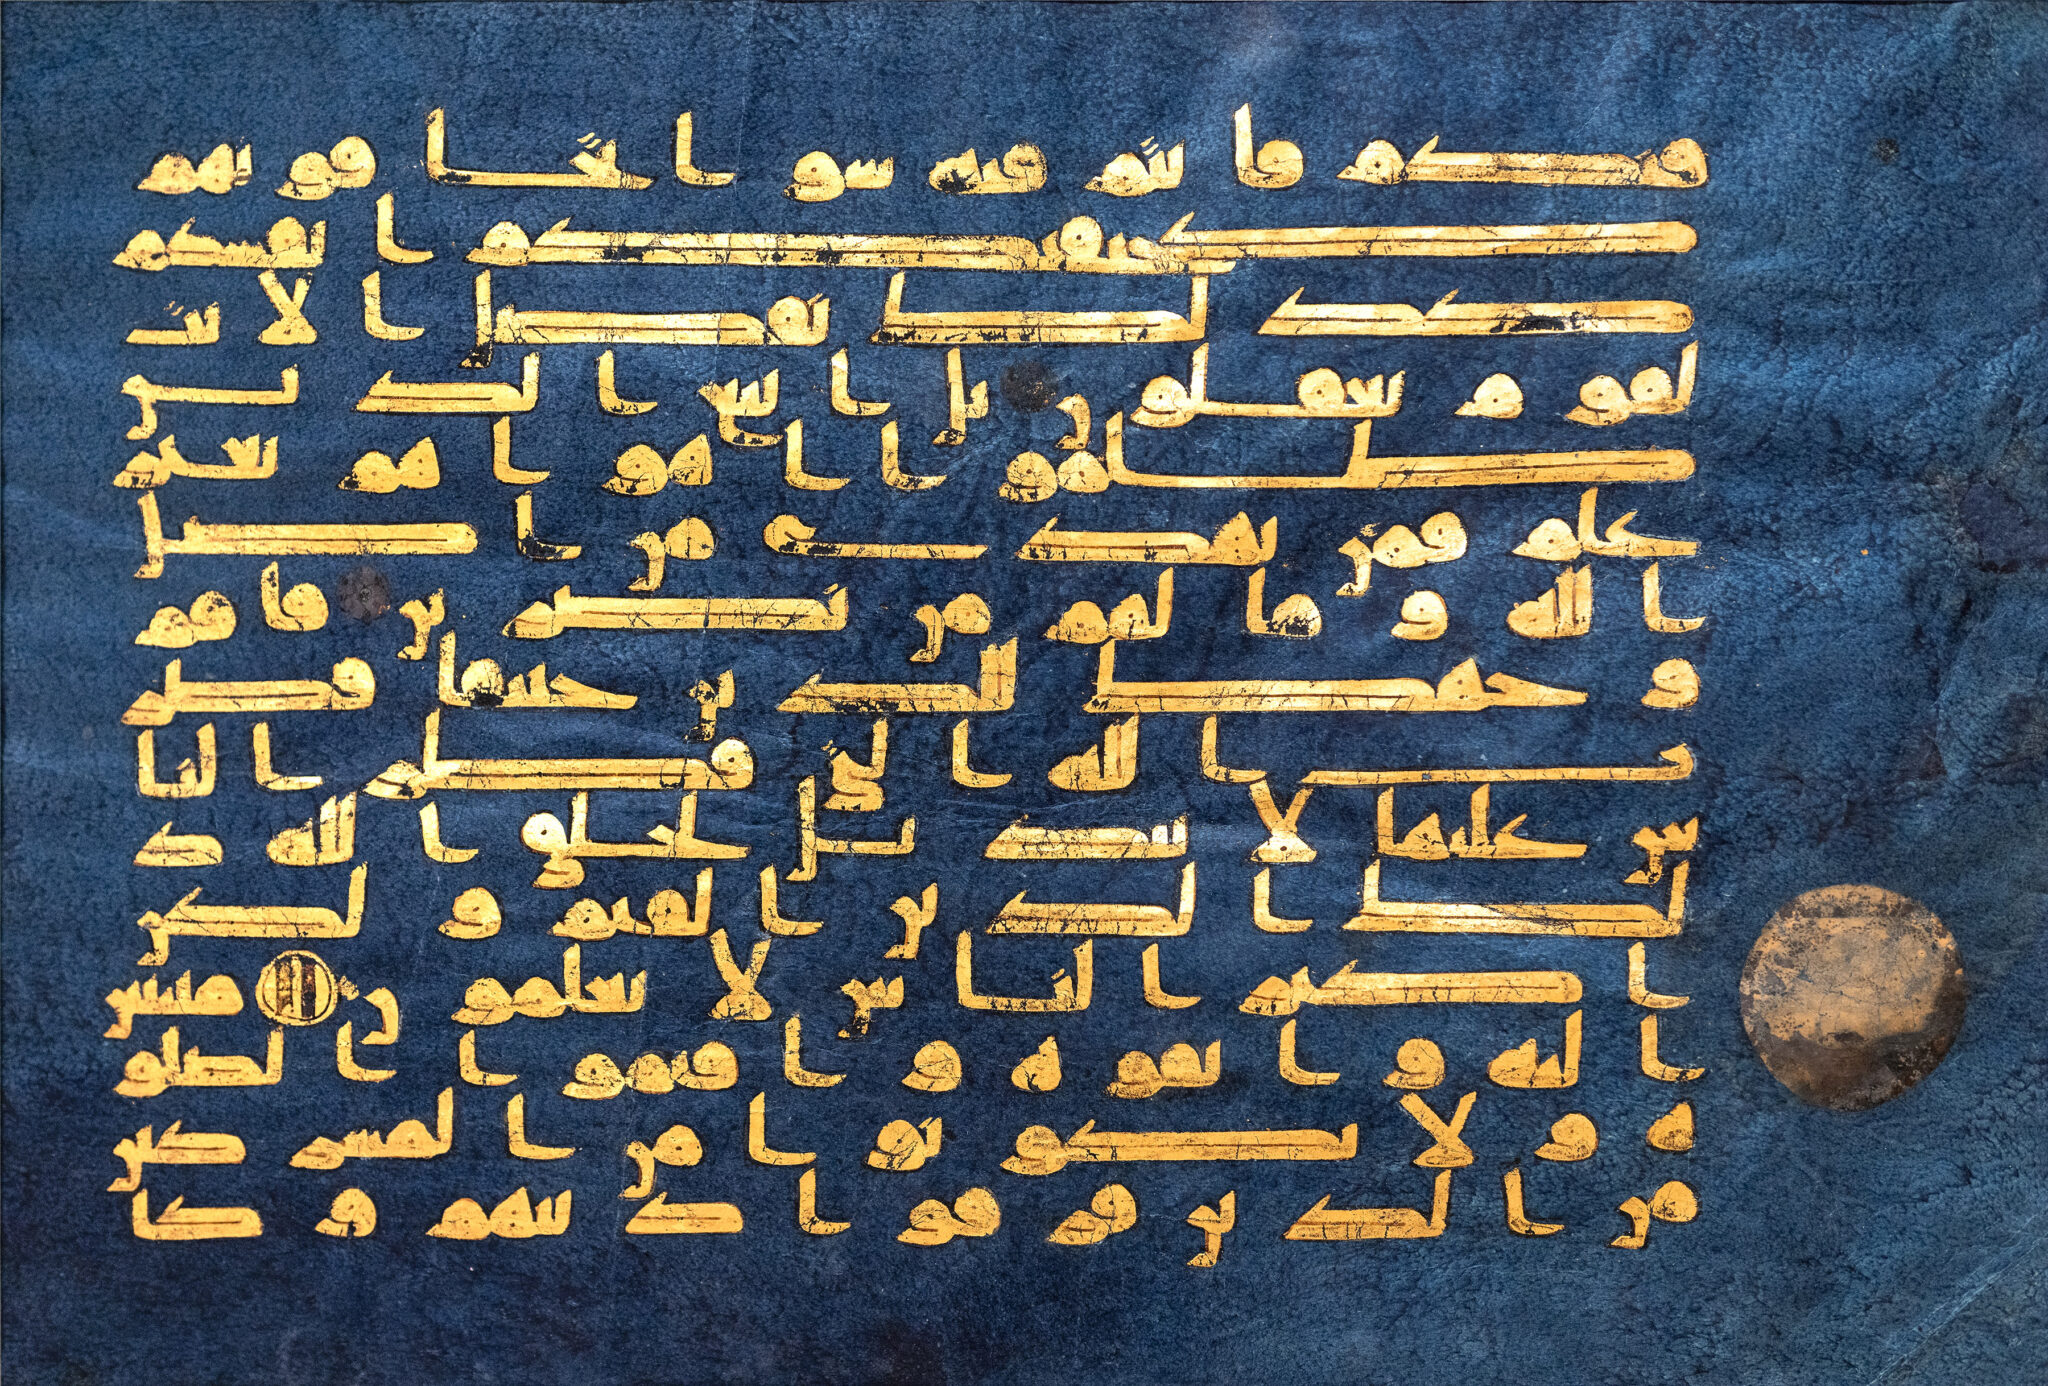 قنكم فانتم فيه سوا تخافونهم
كخيفتكم انفسكم
كذلك نفصل الايت
لقوم يعقلون بل اتبع الذين
ظلموا اهواهم بغير
علم فمن يهدى من اضل
الله وما لهم من نصرين فاقم
وجهك للدين حنيفا فطر
ت الله التى فطر النا
س عليها لا تبديل لخلق الله ذ
لك الدين القيم ولكن
اكثر الناس لا يعلمون منيبين
اليه واتقوه واقيموا الصلو
ة ولا تكونوا من المشركين
من الذين فرقوا دينهم وكا